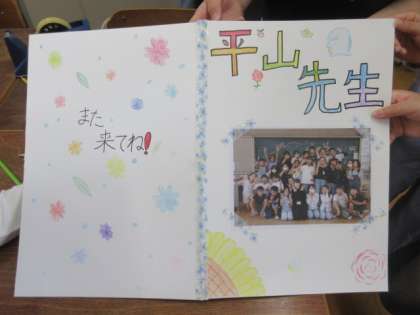 平山
先生
また
来てね!